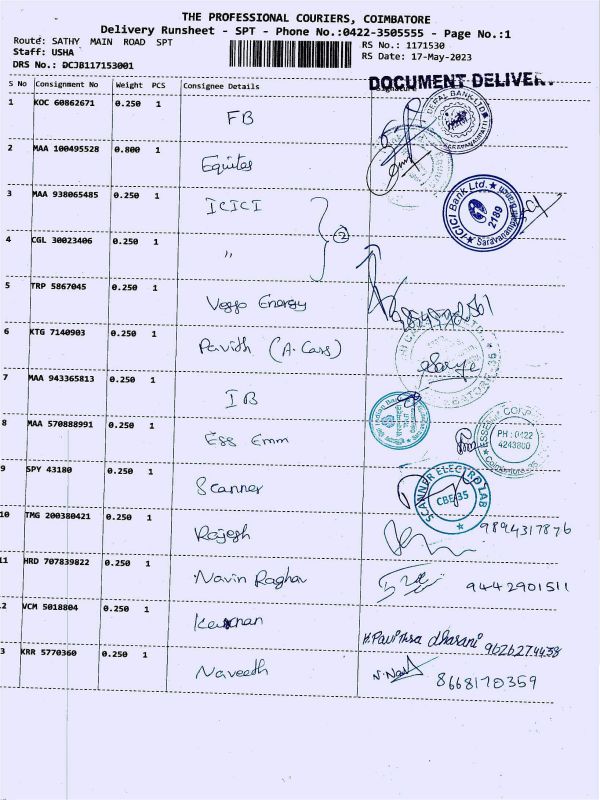 THE PROFESSIONAL COURIERS, COIMBATORE
Delivery Runsheet - SPT - Phone No.:0422-3505555 - Page No.:1
Route: SATHY MAIN ROAD SPT
Staff: USHA
DRS No.: DCJB117153001
RS No.: 1171530
RS Date: 17-May-2023
DOCUMENT DELIVERY
S No Consignment No Weight PCS Consignee Details Signature
1 KOC 60862671 0.250 1 FB
2 MAA 100495528 0.800 1 Equitas
3 MAA 938065485 0.250 1 ICICI
ICICI Bank Ltd. 2189 Saravanampatti
4 CGL 30023406 0.250 1 "
2
5 TRP 5867045 0.250 1
Energy
6 KTG 7140903 0.250 1 Pavith (A. Cars)
7 MAA 943365813 0.250 1 IB
Indian Bank
8 MAA 570888991 0.250 1 Ess Emm
PH : 0422
4243800
Coimbatore-35
9 SPY 43180 0.250 1 Scanner
SCANNER ELECTRO LAB
CBE-35
10 TMG 200380421 0.250 1 Rajesh 9894317876
11 HRD 707839822 0.250 1 Navin Raghav 9442901511
2 VCM 5018804 0.250 1
dharani 9626274438
3 KRR 5770360 0.250 1 Naveeth 8668170359